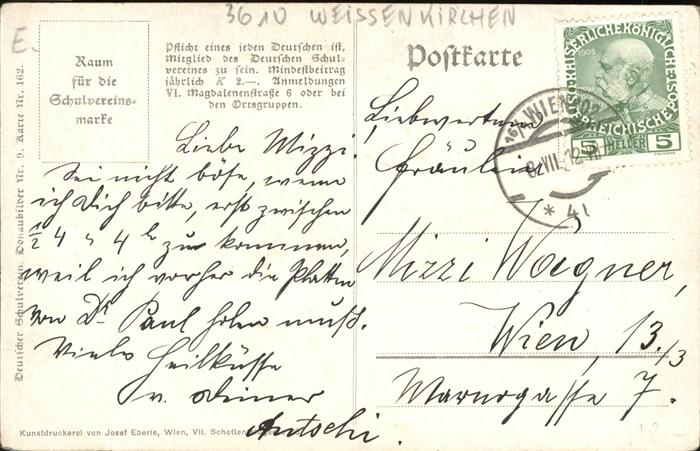 3610 WEISSENKIRCHEN
E.
Raum
für die
Schulvereins-
marke
Pflicht eines jeden Deutschen ist,
Mitglied des Deutschen Schul-
vereines zu sein. Mindestbeitrag
jährlich K 2.—. Anmeldungen
VI. Magdalenenstraße 6 oder bei
den Ortsgruppen.
Postkarte
Deutscher Schulverein. Donaubilder Nr. 9. Karte Nr. 162.
Liebe Mizzi!
Sei nicht böse, wenn
ich Dich bitte, erst zwischen
1/2 4 u 4 h zu kommen,
weil ich vorher die Platten
von Dr Paul holen muß.
Viele Heilküsse
v. Deiner
Liebwertem
Fräulein
Mizzi Wagner,
Wien, 13./3
Warnogasse 7.
1908
5 HELLER 5
WIEN
VII. 12
* 4t
Kunstdruckerei von Josef Eberle, Wien, VII. Schotten